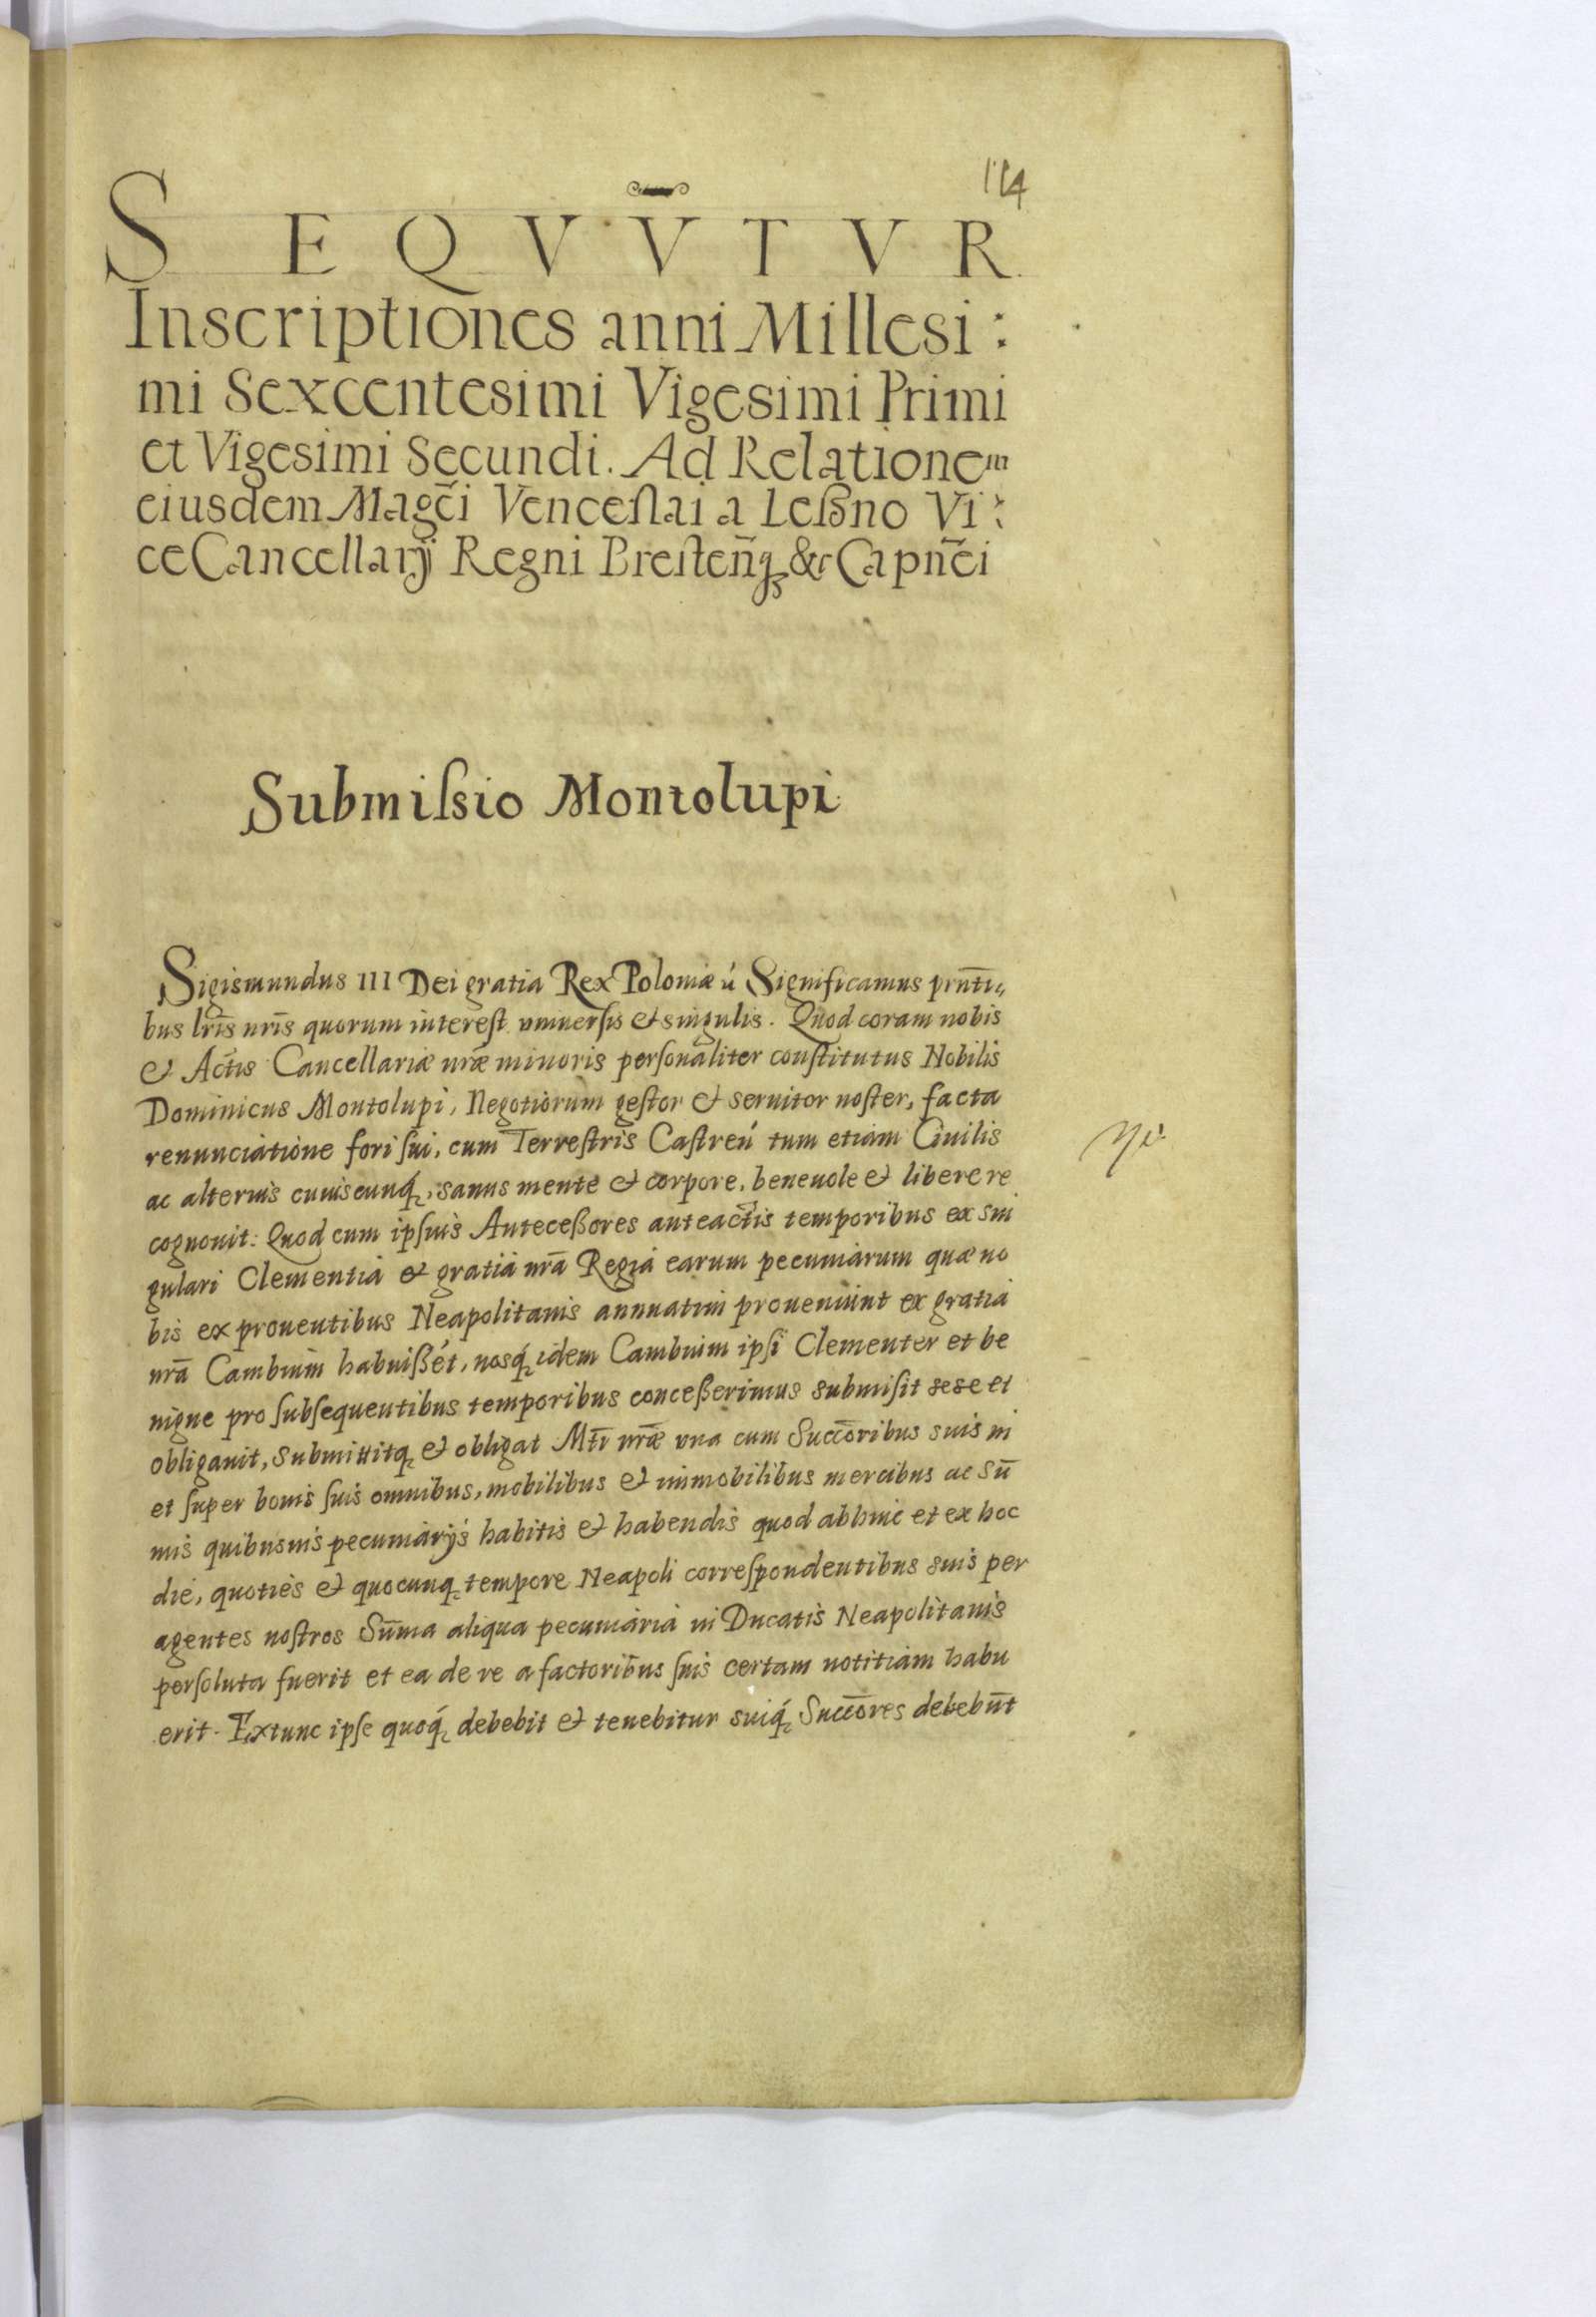 114
SEQVV̄TVR
Inscriptiones anni Millesi:
mi Sexcentesimi Vigesimi Primi
et Vigesimi Secundi. Ad Relationem
eiusdem Magc̃i Venceslai a Leßno Vi:
ce Cancellarij Regni Bresten̄q &c Capn̄ei
Submiſsio Montolupi
Sigismundus III Dei gratia Rex Poloniæ ú Significamus prn̄ti„
bus lr̄is nr̄is quorum interest vniuersis & singulis. Quod coram nobis
& Actis Cancellariæ nr̄æ minoris personaliter constitutus Nobilis
Dominicus Montolupi, Negotiorum gestor & seruitor noster, facta
renunciatione fori sui, cum Terrestris Castreń tum etiam Ciuilis
ac alterius cuiuscunq́, sanus mente & corpore, beneuole & libere re
cognouit: Quod cum ipsius Anteceßores anteactis temporibus ex sin
gulari Clementia & gratia nr̄a Regia earum pecuniarum quæ no
bis ex prouentibus Neapolitanis annuatim proueniunt ex gratia
nr̄a Cambium habuißét, nosq́ idem Cambium ipsi Clementer et be
nigne pro subsequentibus temporibus conceßerimus submisit sese et
obligauit, submittitq & obligat Mt̄i nr̄æ vna cum Succc̄oribus suis in
et super bonis suis omnibus, mobilibus & immobilibus mercibus ac Sum̄
mis quibusuis pecuniarijs habitis & habendis quod abhinc et ex hoc
die, quoties & quocunq tempore Neapoli correspondentibus suis per
agentes nostros Sūma aliqua pecuniaria in Ducatis Neapolitanis
persoluta fuerit et ea de re a factoribus suis certam notitiam habu
erit. Extunc ipse quoq́ debebit & tenebitur suiq́ Succc̄ores debebūt